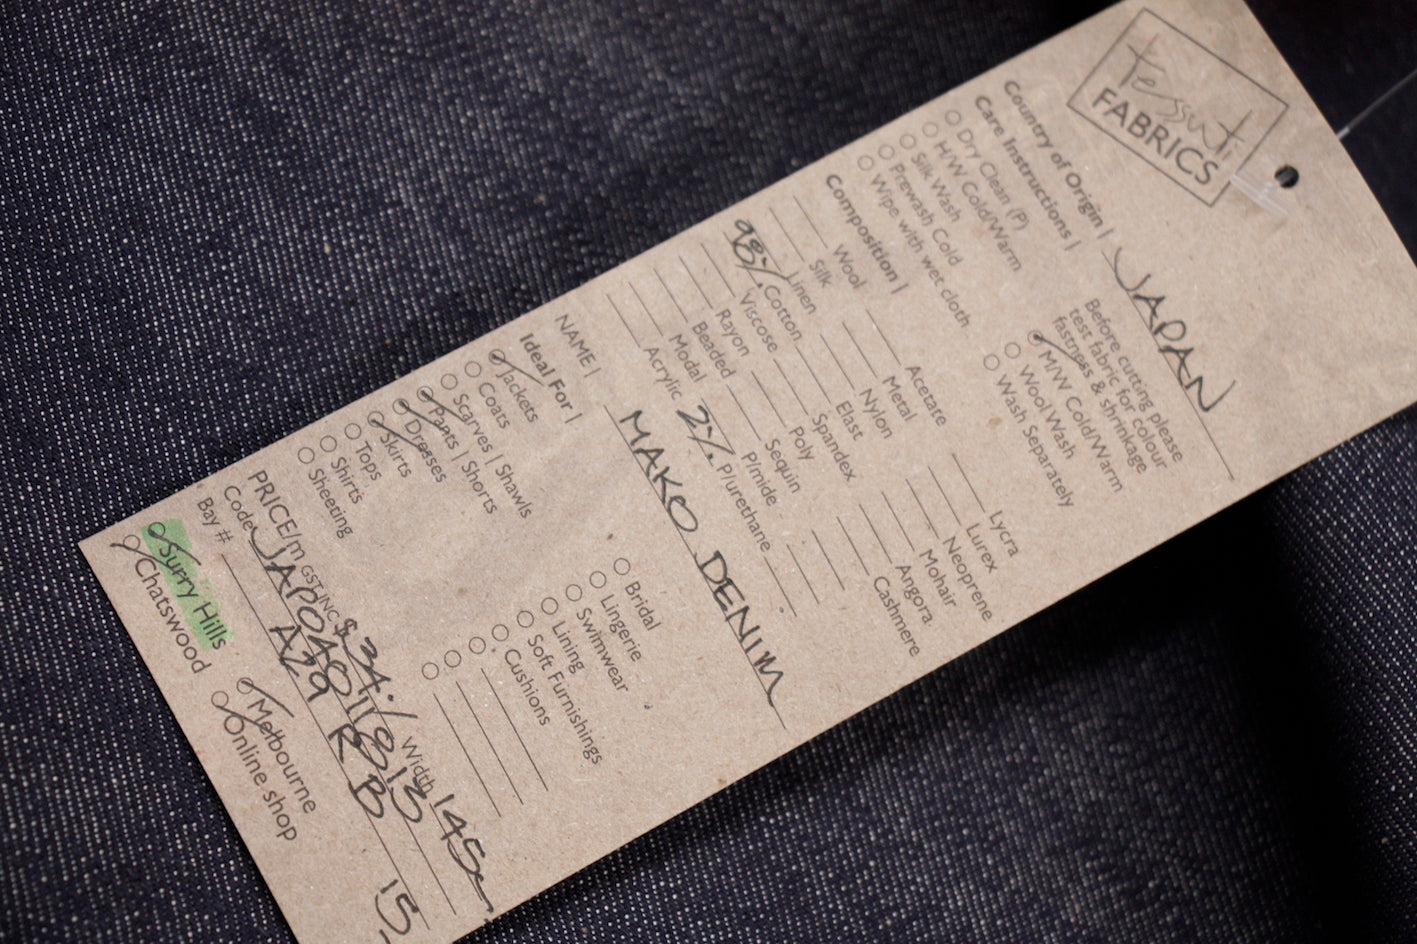 tessuti
FABRICS
Country of Origin | JAPAN
Care Instructions |
Dry Clean (P)
H/W Cold/Warm
Silk Wash
Prewash Cold
Wipe with wet cloth
Before cutting please
test fabric for colour
fastness & shrinkage
M/W Cold/Warm
Wool Wash
Wash Separately
Composition |
Wool
Silk
Linen
98% Cotton
Viscose
Rayon
Beaded
Modal
Acrylic
Acetate
Metal
Nylon
Elast
Spandex
Poly
Sequin
P/mide
2% P/urethane
Lycra
Lurex
Neoprene
Mohair
Angora
Cashmere
NAME | MAKO DENIM
Ideal For |
Jackets
Coats
Scarves | Shawls
Pants | Shorts
Dresses
Skirts
Tops
Shirts
Sheeting
Bridal
Lingerie
Swimwear
Lining
Soft Furnishings
Cushions
PRICE/m GST INC $34./ Width 145
Code
Bay # A29 R B 15
Surry Hills
Chatswood
Melbourne
Online shop